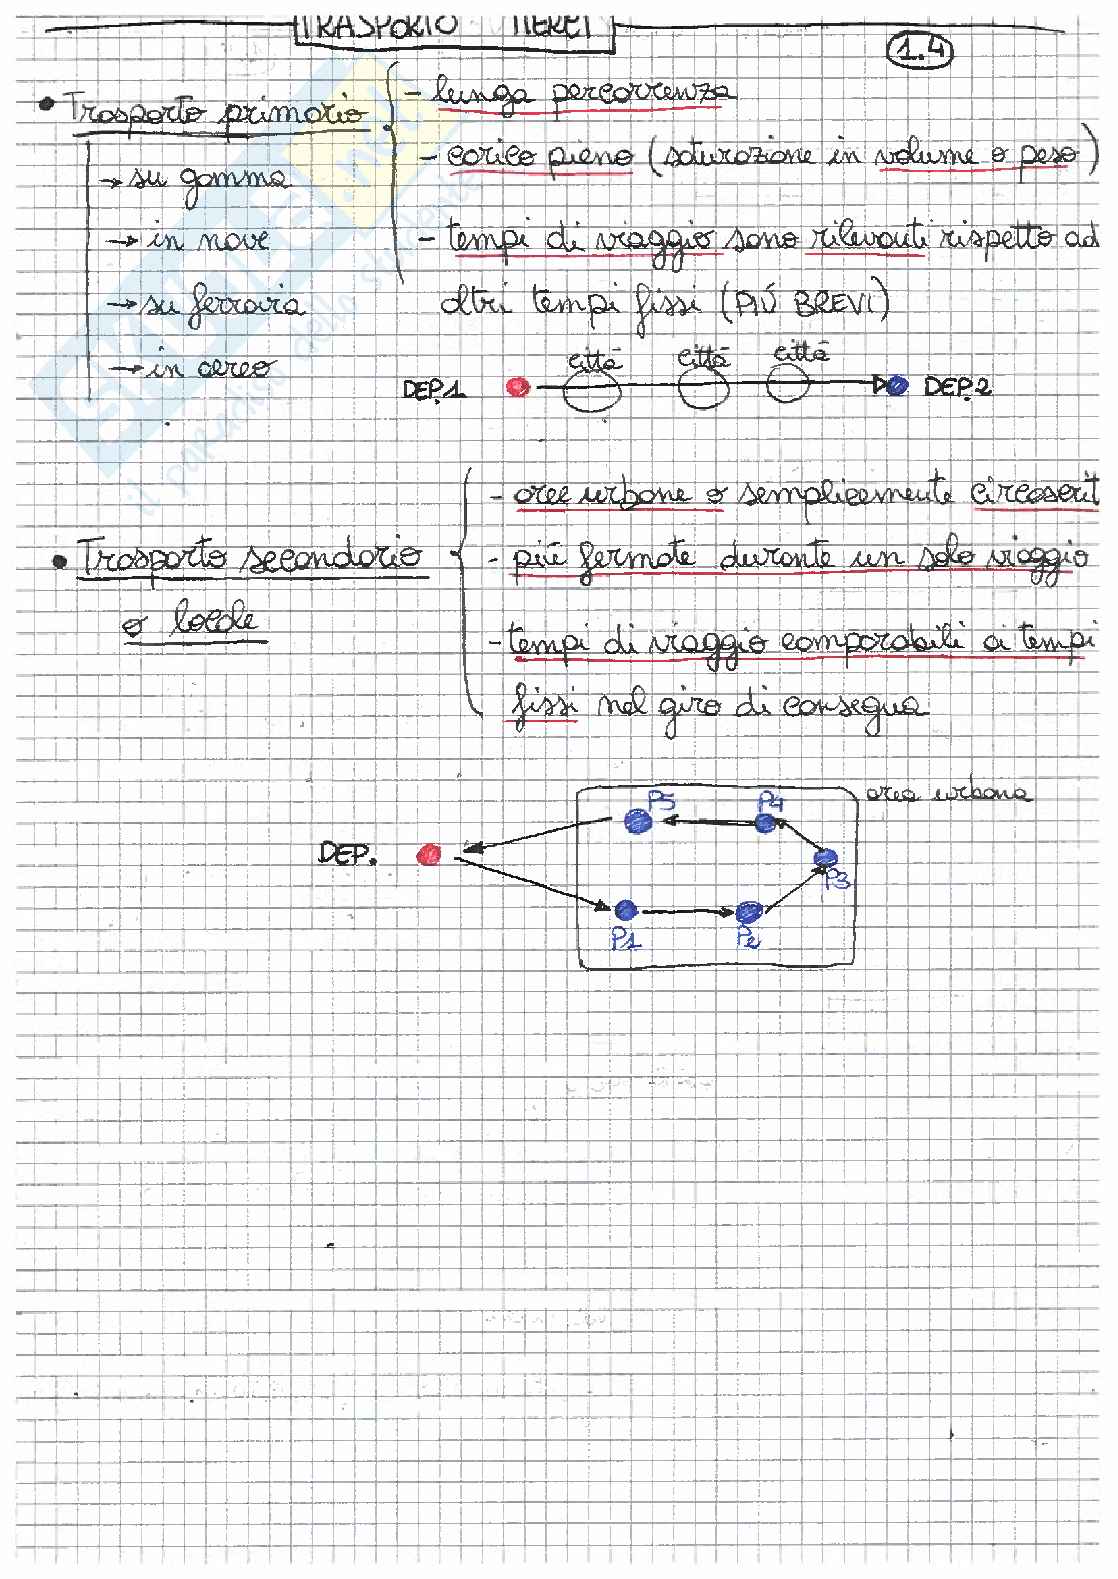 TRASPORTO MERCI
1.4
• Trasporto primario
→ su gomma
→ in nave
→ su ferrovia
→ in aereo
- lunga percorrenza
- carico pieno (saturazione in volume o peso)
- tempi di viaggio sono rilevanti rispetto ad
altri tempi fissi (PIÚ BREVI)
città città città
DEP.1 DEP.2
• Trasporto secondario
o locale
- aree urbane o semplicemente circoscrit
- più fermate durante un solo viaggio
- tempi di viaggio comparabili ai tempi
fissi nel giro di consegna
area urbana
P5 P4
DEP.
P3
P1 P2
SKUOLA.net
il paradiso dello studente